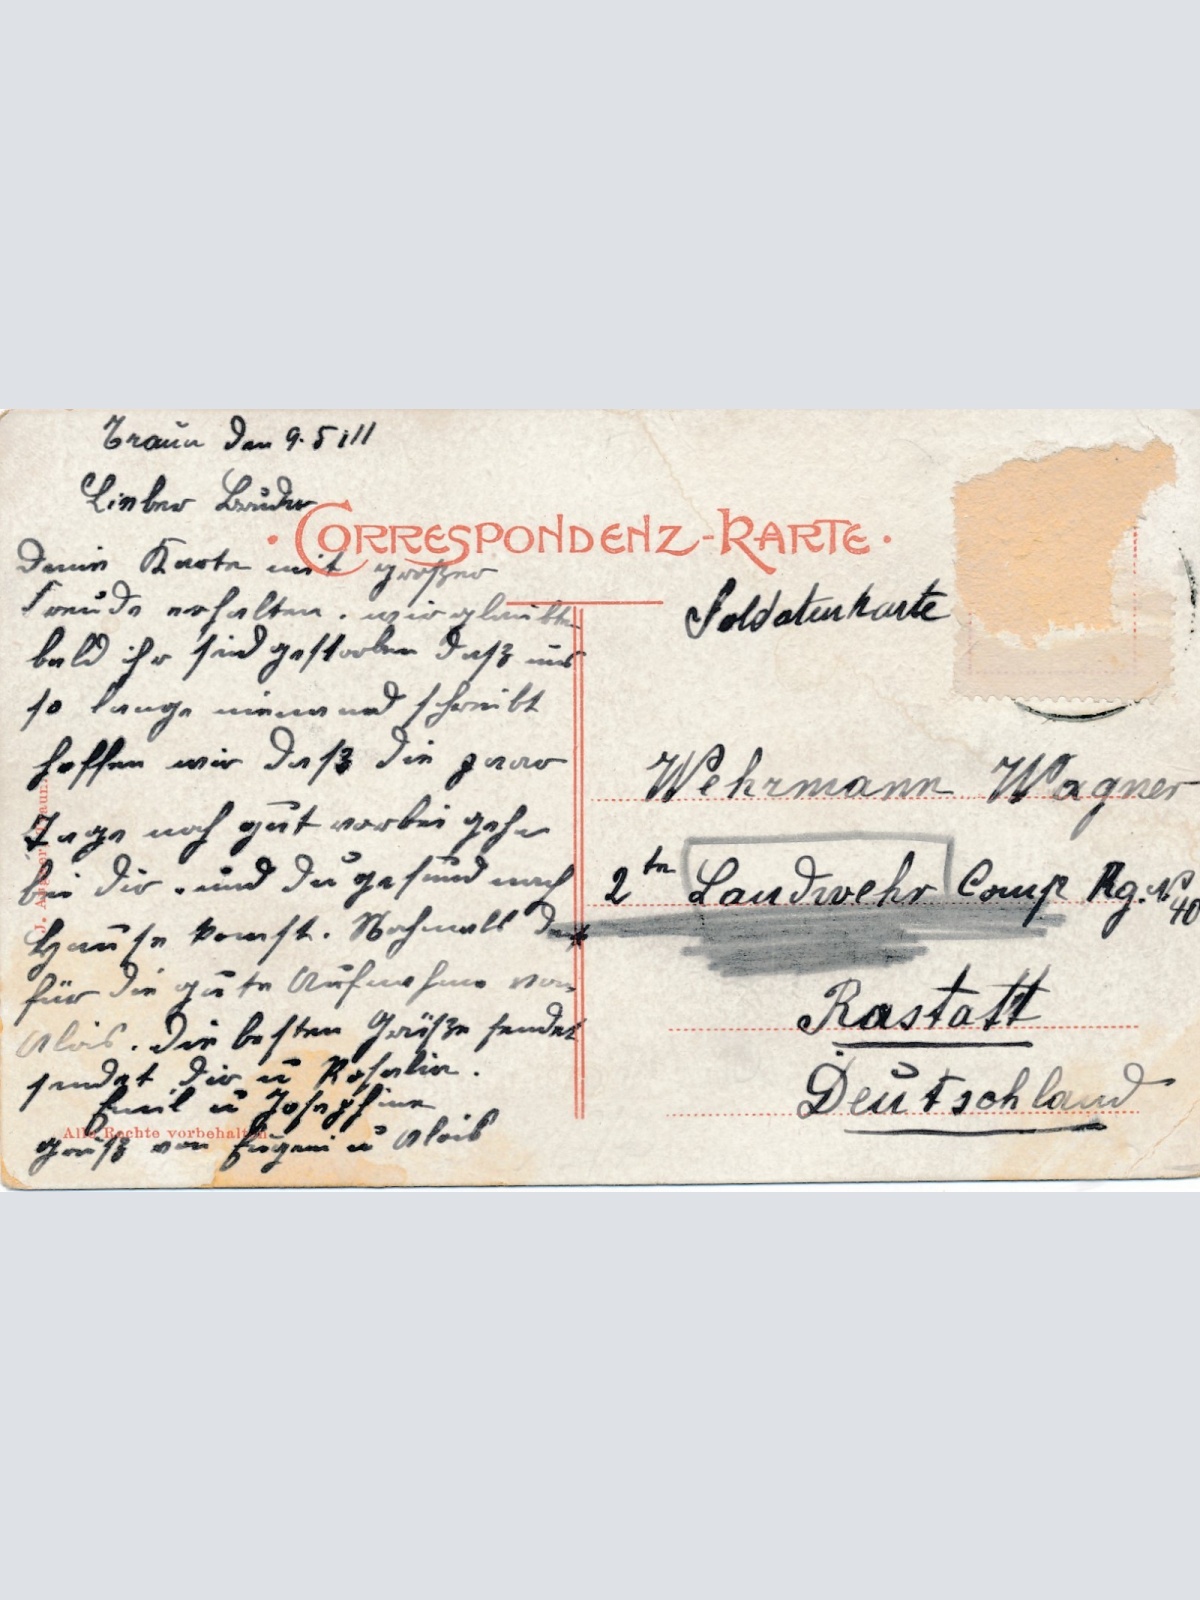 Traun den 9.5.11
Lieber Bruder
CORRESPONDENZ-KARTE
Deine Karte mit großer
Freude erhalten. wir glaubten
bald ihr seid gestorben daß uns
so lange niemand schreibt
hoffen wir daß die paar
Tage noch gut vorbei gehn
bei dir. und du gesund nach
Hause komst. Nochmall Dank
für die gute Aufnahme von
Alois. Die besten Grüße sendet
sendet dir u Rosalia.
Emil u Josephine
gruß von Eugeni u Alois
Alle Rechte vorbehalten.
Soldatenkarte
Wehrmann Wagner
2te Landwehr Comp Rg. No 40
Rastatt
Deutschland